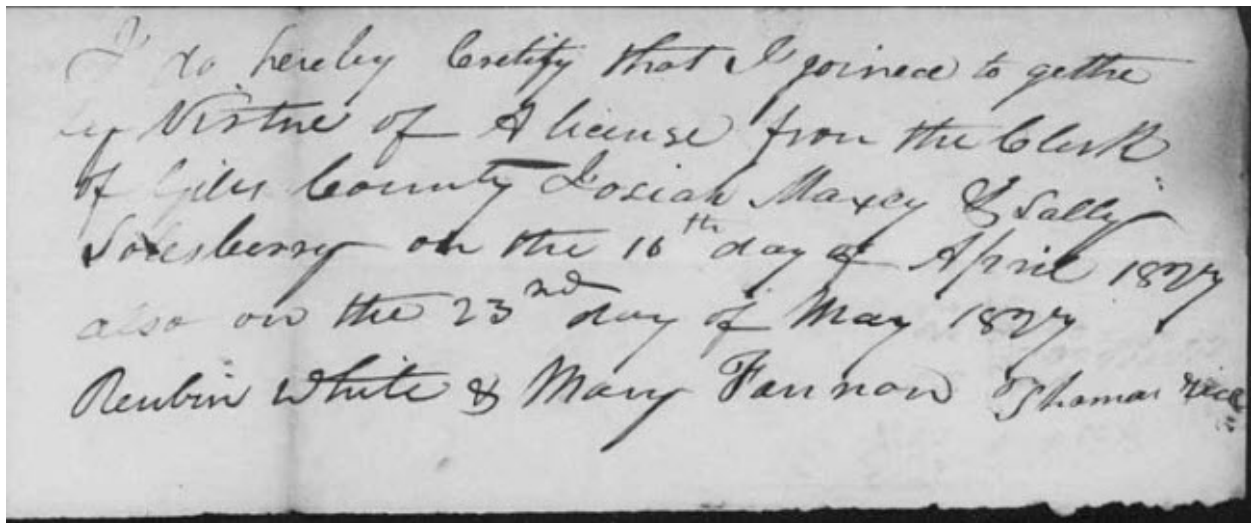 I do hereby Certify that I joined to gethe
by Virtue of A license from the Clerk
of Giles County Josiah Maxey & Sally
Solesberry on the 16th day of April 1827
also on the 23nd day of May 1827
Reubin White & Mary Fannon Thomas